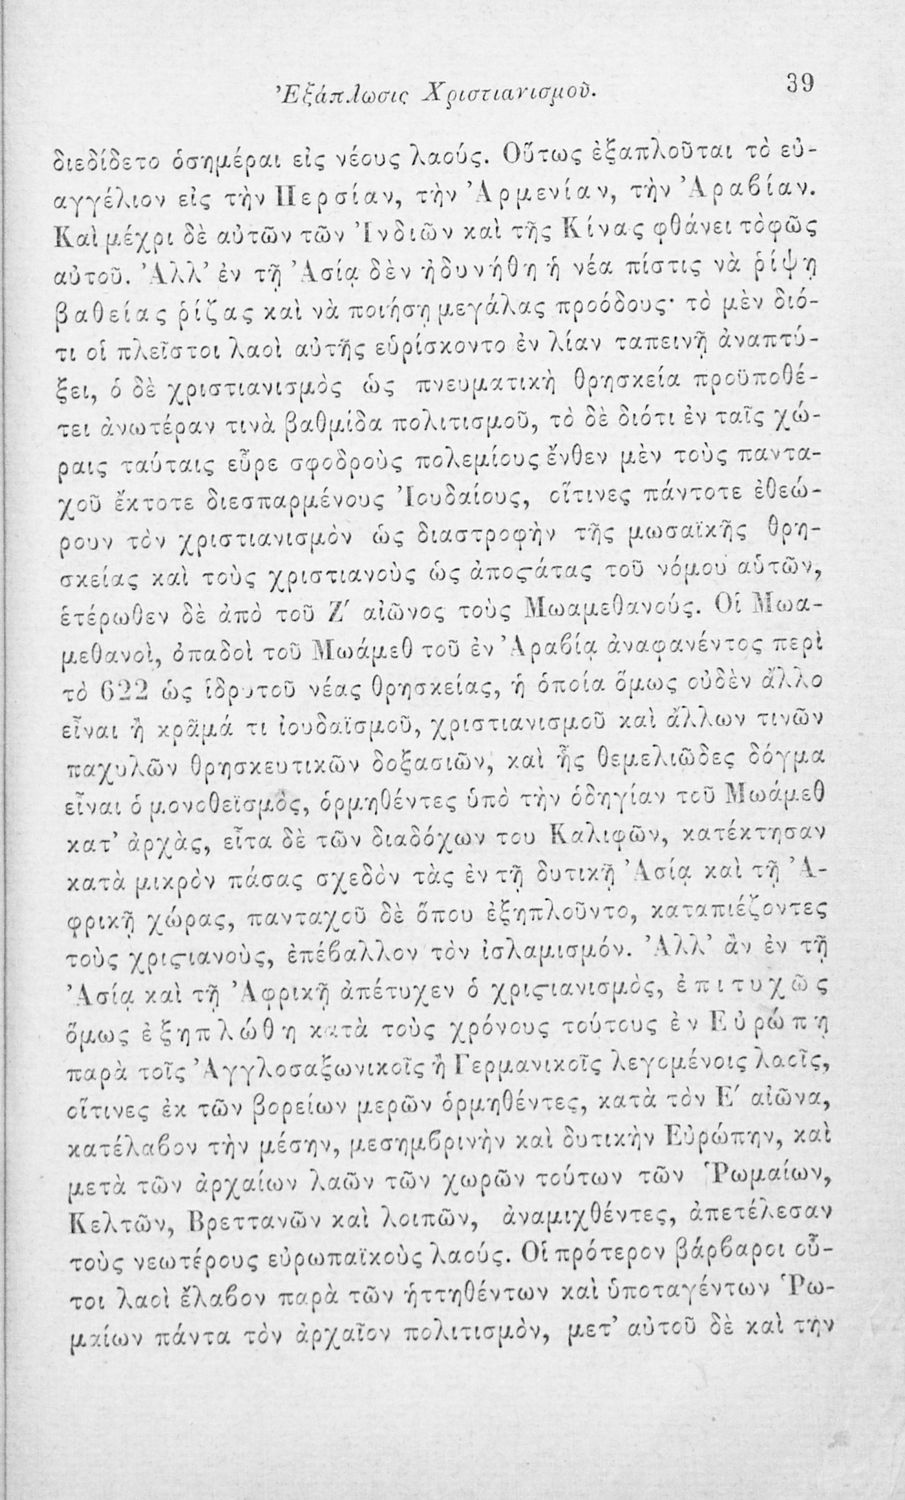 Ἐξάπλωσις Χριστιανισμοῦ. 39
διεδίδετο ὁσημέραι εἰς νέους λαούς. Οὕτως ἐξαπλοῦται τὸ εὐ-
αγγέλιον εἰς τὴν Περσίαν, τὴν Ἀρμενίαν, τὴν Ἀραβίαν.
Καὶ μέχρι δὲ αὐτῶν τῶν Ἰνδιῶν καὶ τῆς Κίνας φθάνει τὸ φῶς
αὐτοῦ. Ἀλλ’ ἐν τῇ Ἀσίᾳ δὲν ἠδυνήθη ἡ νέα πίστις νὰ ῥίψῃ
βαθείας ῥίζας καὶ νὰ ποιήσῃ μεγάλας προόδους· τὸ μὲν διό-
τι οἱ πλεῖστοι λαοὶ αὐτῆς εὑρίσκοντο ἐν λίαν ταπεινῇ ἀναπτύ-
ξει, ὁ δὲ χριστιανισμὸς ὡς πνευματικὴ θρησκεία προϋποθέ-
τει ἀνωτέραν τινὰ βαθμίδα πολιτισμοῦ, τὸ δὲ διότι ἐν ταῖς χώ-
ραις ταύταις εὗρε σφοδροὺς πολεμίους ἔνθεν μὲν τοὺς παντα-
χοῦ ἔκτοτε διεσπαρμένους Ἰουδαίους, οἵτινες πάντοτε ἐθεώ-
ρουν τὸν χριστιανισμὸν ὡς διαστροφὴν τῆς μωσαϊκῆς θρη-
σκείας καὶ τοὺς χριστιανοὺς ὡς ἀποϛάτας τοῦ νόμου αὑτῶν,
ἑτέρωθεν δὲ ἀπὸ τοῦ Ζ′ αἰῶνος τοὺς Μωαμεθανούς. Οἱ Μωα-
μεθανοὶ, ὀπαδοὶ τοῦ Μωάμεθ τοῦ ἐν Ἀραβίᾳ ἀναφανέντος περὶ
τὸ 622 ὡς ἱδρυτοῦ νέας θρησκείας, ἡ ὁποία ὅμως οὐδὲν ἄλλο
εἶναι ἢ κρᾶμά τι ἰουδαϊσμοῦ, χριστιανισμοῦ καὶ ἄλλων τινῶν
παχυλῶν θρησκευτικῶν δοξασιῶν, καὶ ἧς θεμελιῶδες δόγμα
εἶναι ὁ μονοθεϊσμὸς, ὁρμηθέντες ὑπὸ τὴν ὁδηγίαν τοῦ Μωάμεθ
κατ’ ἀρχὰς, εἶτα δὲ τῶν διαδόχων του Καλιφῶν, κατέκτησαν
κατὰ μικρὸν πάσας σχεδὸν τὰς ἐν τῇ δυτικῇ Ἀσίᾳ καὶ τῇ Ἀ-
φρικῇ χώρας, πανταχοῦ δὲ ὅπου ἐξηπλοῦντο, καταπιέζοντες
τοὺς χριϛιανοὺς, ἐπέβαλλον τὸν ἰσλαμισμόν. Ἀλλ’ ἂν ἐν τῇ
Ἀσίᾳ καὶ τῇ Ἀφρικῇ ἀπέτυχεν ὁ χριϛιανισμὸς, ἐπιτυχῶς
ὅμως ἐξηπλώθη κατὰ τοὺς χρόνους τούτους ἐν Εὐρώπῃ
παρὰ τοῖς Ἀγγλοσαξωνικοῖς ἢ Γερμανικοῖς λεγομένοις λαοῖς,
οἵτινες ἐκ τῶν βορείων μερῶν ὁρμηθέντες, κατὰ τὸν Ε′ αἰῶνα,
κατέλαβον τὴν μέσην, μεσημβρινὴν καὶ δυτικὴν Εὐρώπην, καὶ
μετὰ τῶν ἀρχαίων λαῶν τῶν χωρῶν τούτων τῶν Ῥωμαίων,
Κελτῶν, Βρεττανῶν καὶ λοιπῶν, ἀναμιχθέντες, ἀπετέλεσαν
τοὺς νεωτέρους εὐρωπαϊκοὺς λαούς. Οἱ πρότερον βάρβαροι οὗ-
τοι λαοὶ ἔλαβον παρὰ τῶν ἡττηθέντων καὶ ὑποταγέντων Ῥω-
μαίων πάντα τὸν ἀρχαῖον πολιτισμὸν, μετ’ αὐτοῦ δὲ καὶ τὴν